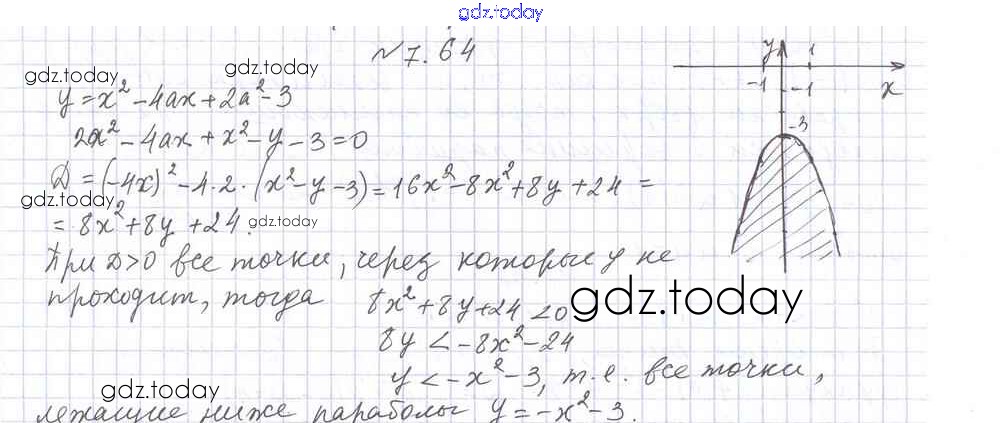 gdz.today
№ 7.64
gdz.today
gdz.today
y = x² - 4ax + 2a² - 3
2a² - 4ax + x² - y - 3 = 0
D = (-4x)² - 4·2·(x² - y - 3) = 16x² - 8x² + 8y + 24 =
gdz.today
= 8x² + 8y + 24.
gdz.today
При D>0 все точки, через которые y не
проходит, тогда 8x² + 8y + 24 < 0
gdz.today
8y < -8x² - 24
y < -x² - 3, т.е. все точки,
gdz.today
лежащие ниже параболы y = -x² - 3.
y
1
-1
-1
x
-3